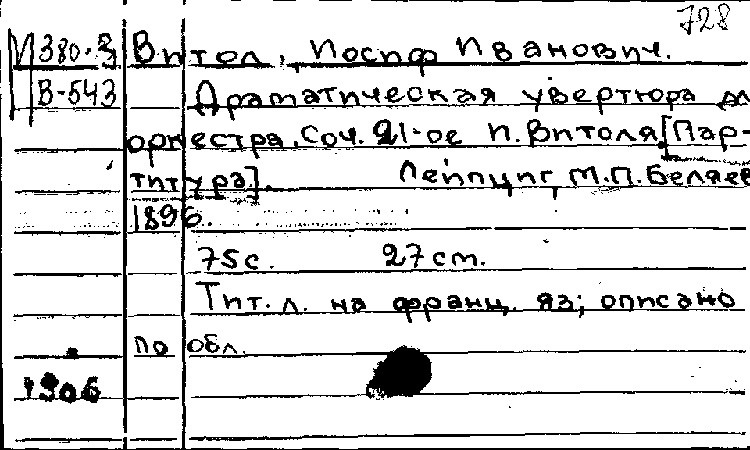 728
И380-3 Витол, Иосиф Иванович.
В-543 Драматическая увертюра дл
оркестра. Соч. 21-ое И. Витоля. [Пар-
титура]. Лейпциг, М.П. Беляев
1896.
75 с. 27 cm.
Тит. л. на франц. яз; описано
по обл.
1906